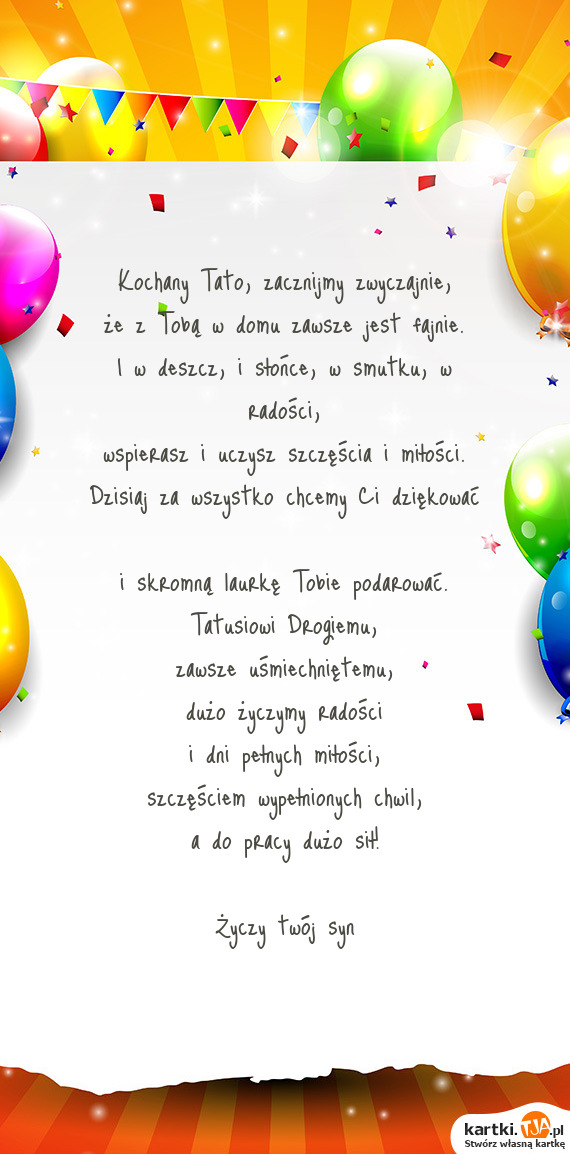 Kochany Tato, zacznijmy zwyczajnie,
że z Tobą w domu zawsze jest fajnie.
I w deszcz, i słońce, w smutku, w
radości,
wspierasz i uczysz szczęścia i miłości.
Dzisiaj za wszystko chcemy Ci dziękować
i skromną laurkę Tobie podarować.
Tatusiowi Drogiemu,
zawsze uśmiechniętemu,
dużo życzymy radości
i dni pełnych miłości,
szczęściem wypełnionych chwil,
a do pracy dużo sił!
Życzy twój syn
kartki.TJA.pl
Stwórz własną kartkę